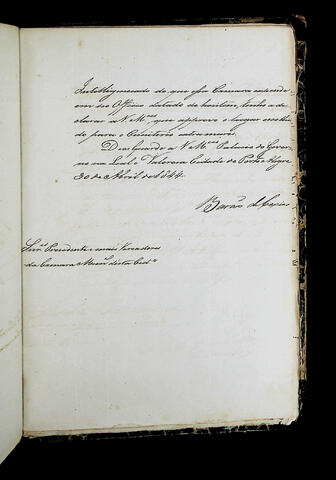 Inteirado de que essa Camara expende
em seo Officio datado de hontem, tenho a de-
clarar a V. M.ces que approvo o lugar escolhi-
do para o Cemiterio extra muros.
Deos Guarde a V. M.ces Palacio do Gover-
no na Leal e Valorosa Cidade de Porto Alegre
30 de Abril de 1844.
Barão de Caxias
Snr.es Presidente e mais Vereadores
da Camara Mun.al desta Cid.e